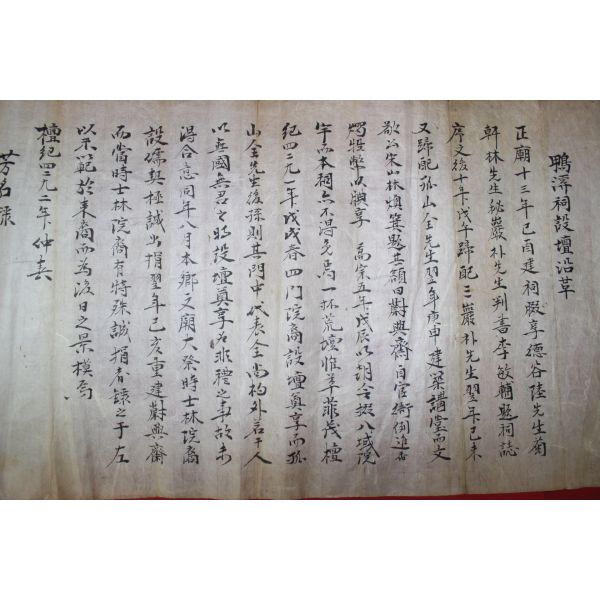 鴨溪祠設壇沿革
正廟十三年己酉建祠腏享德谷陸先生菊
軒林先生秘巖朴先生判書李敏輔題祠誌
序文後十年戊午躋配三巖朴先生翌年己未
又躋配孤山全先生翌年庚申建築講堂而文
敬公宋山林煥箕題其額曰尉興齋自官衙例進香
燭牲幣以腏享 高宗五年戊辰以朝令掇八域院
宇而本祠亦不得免焉一杯荒壇惟草菲茂檀
紀四二九一年戊戌春四門院裔設壇奠享而孤
山全先生後孫則其門中代表全尚杓外若干人
以無國無君之時設壇奠享者非禮之事故未
得合意同年八月本鄉文廟大祭時士林院裔
設儒契極誠出捐翌年己亥重建尉興齋
而當時士林院裔有特殊誠捐者錄之于左
以示以範於来裔而為後日之景模焉
檀紀四二九二年仲春
芳名錄